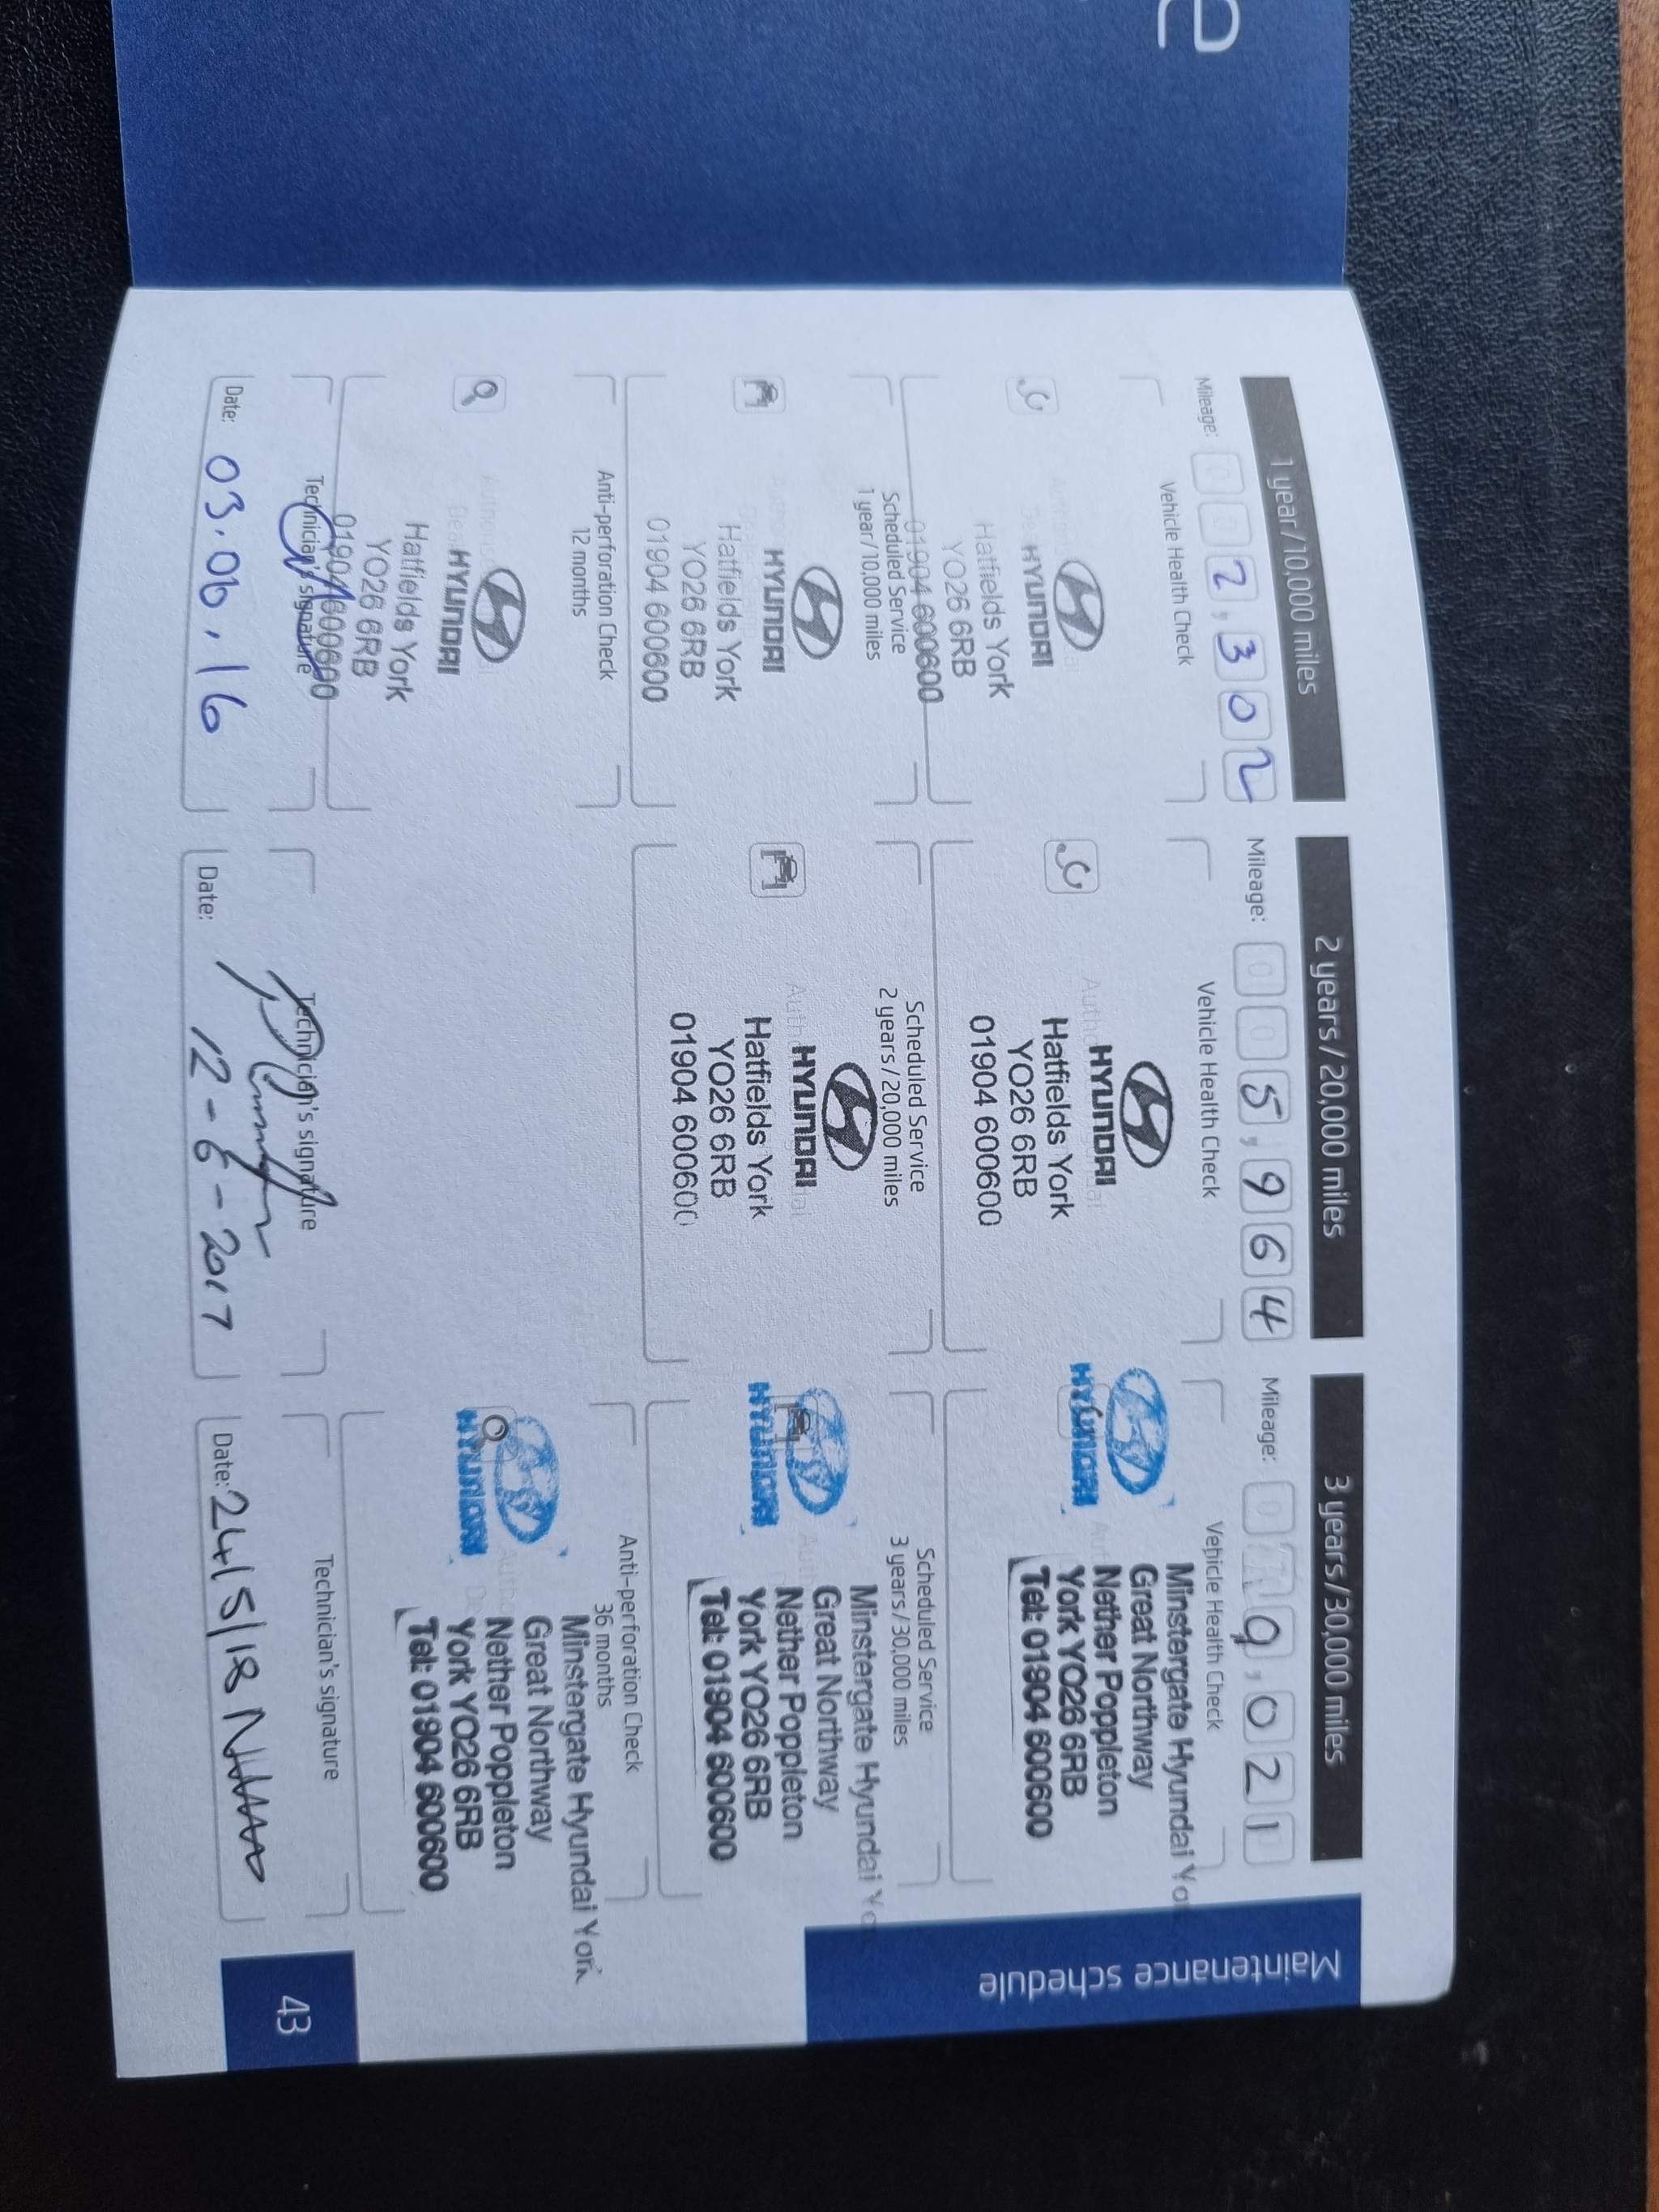 e
Maintenance schedule
1 year/10,000 miles
Mileage: 0 0 2,302
Vehicle Health Check
HYUNDAI
Hatfields York
YO26 6RB
01904 600600
Scheduled Service
1 year/10,000 miles
HYUNDAI
Hatfields York
YO26 6RB
01904 600600
Anti-perforation Check
12 months
HYUNDAI
Hatfields York
YO26 6RB
01904 600600
Technician's signature
Date: 03.06.16
2 years/20,000 miles
Mileage: 0 0 5,964
Vehicle Health Check
HYUNDAI
Hatfields York
YO26 6RB
01904 600600
Scheduled Service
2 years/20,000 miles
HYUNDAI
Hatfields York
YO26 6RB
01904 600600
Technician's signature
Date: 12-6-2017
3 years/30,000 miles
Mileage: 9,021
Vehicle Health Check
HYUNDAI
Minstergate Hyundai Yo
Great Northway
Nether Poppleton
York YO26 6RB
Tel: 01904 600600
Scheduled Service
3 years/30,000 miles
HYUNDAI
Minstergate Hyundai Yo
Great Northway
Nether Poppleton
York YO26 6RB
Tel: 01904 600600
Anti-perforation Check
36 months
HYUNDAI
Minstergate Hyundai York
Great Northway
Nether Poppleton
York YO26 6RB
Tel: 01904 600600
Technician's signature
Date: 24/5/18
43